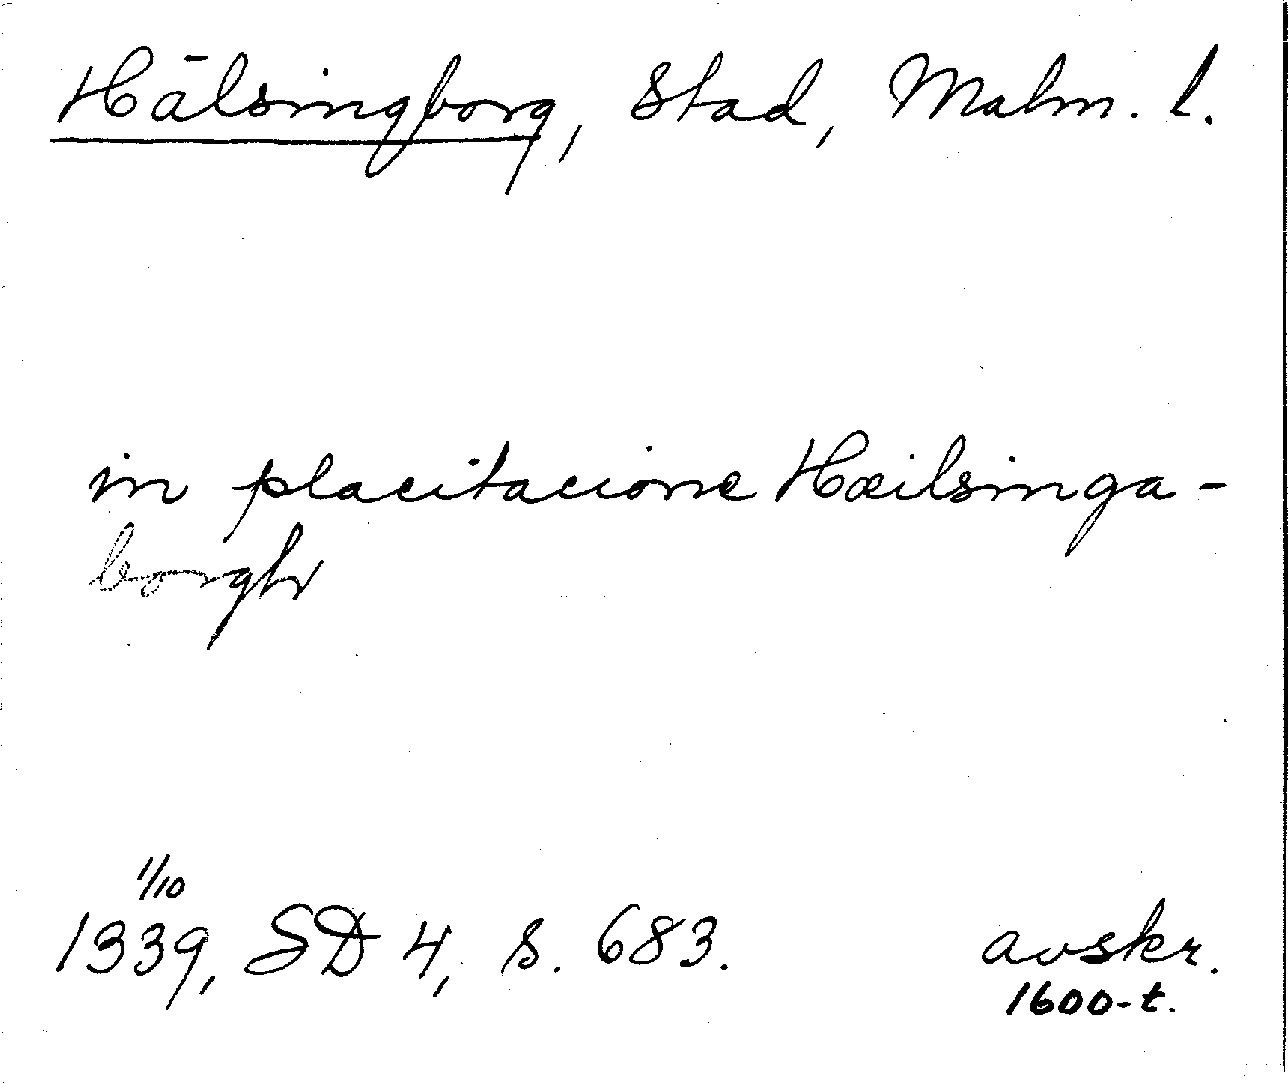 Hälsingborg, stad, Malm. l.
in placitacione Hæilsinga-
borgh
1/10
1339, SD 4, s. 683.
avskr.
1600-t.